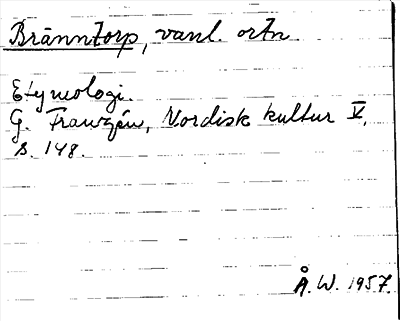 Bränntorp, vanl. ortn
Etymologi.
G. Franzén, Nordisk kultur V,
s. 148.
Å. W. 1957.